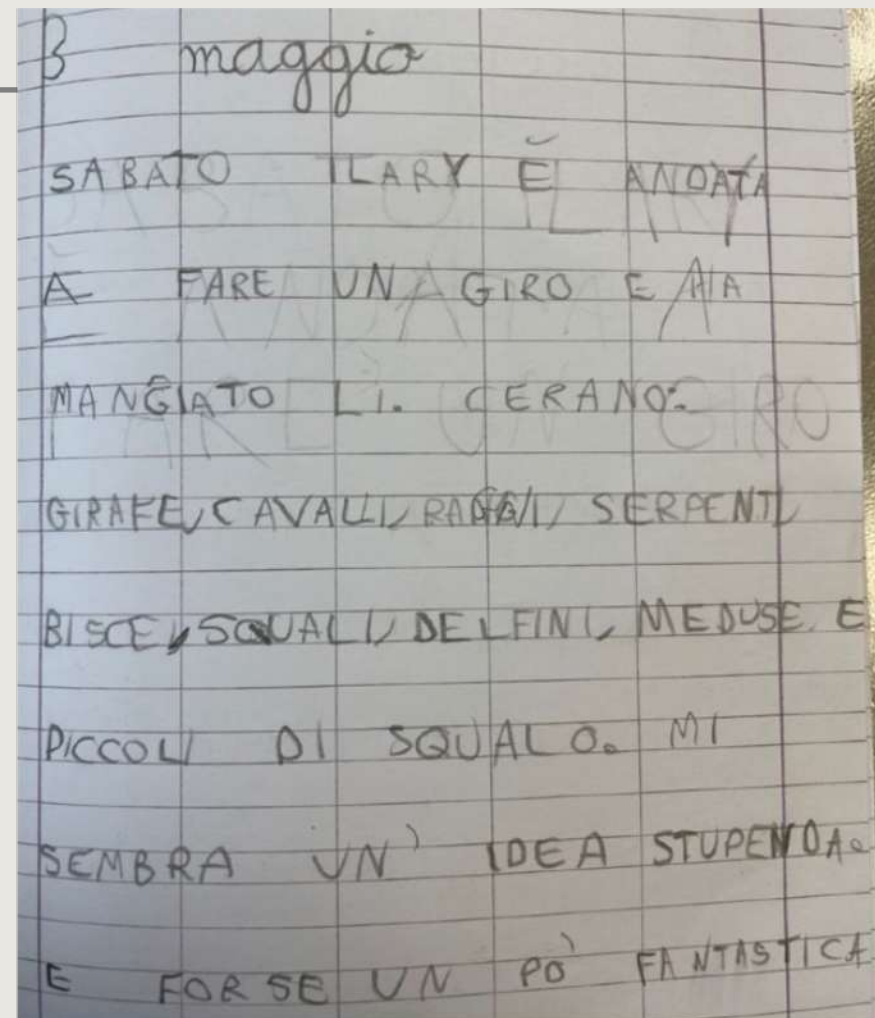 3 maggio
SABATO ILARY È ANDATA
A FARE UN GIRO E A
MANGIATO LÌ. CERANO:
GIRAFE, CAVALLI, RAGGI, SERPENTI,
BISCE, SQUALI, DELFINI, MEDUSE E
PICCOLI DI SQUALO. MI
SEMBRA UN' IDEA STUPENDA.
E FORSE UN PÒ FANTASTICA